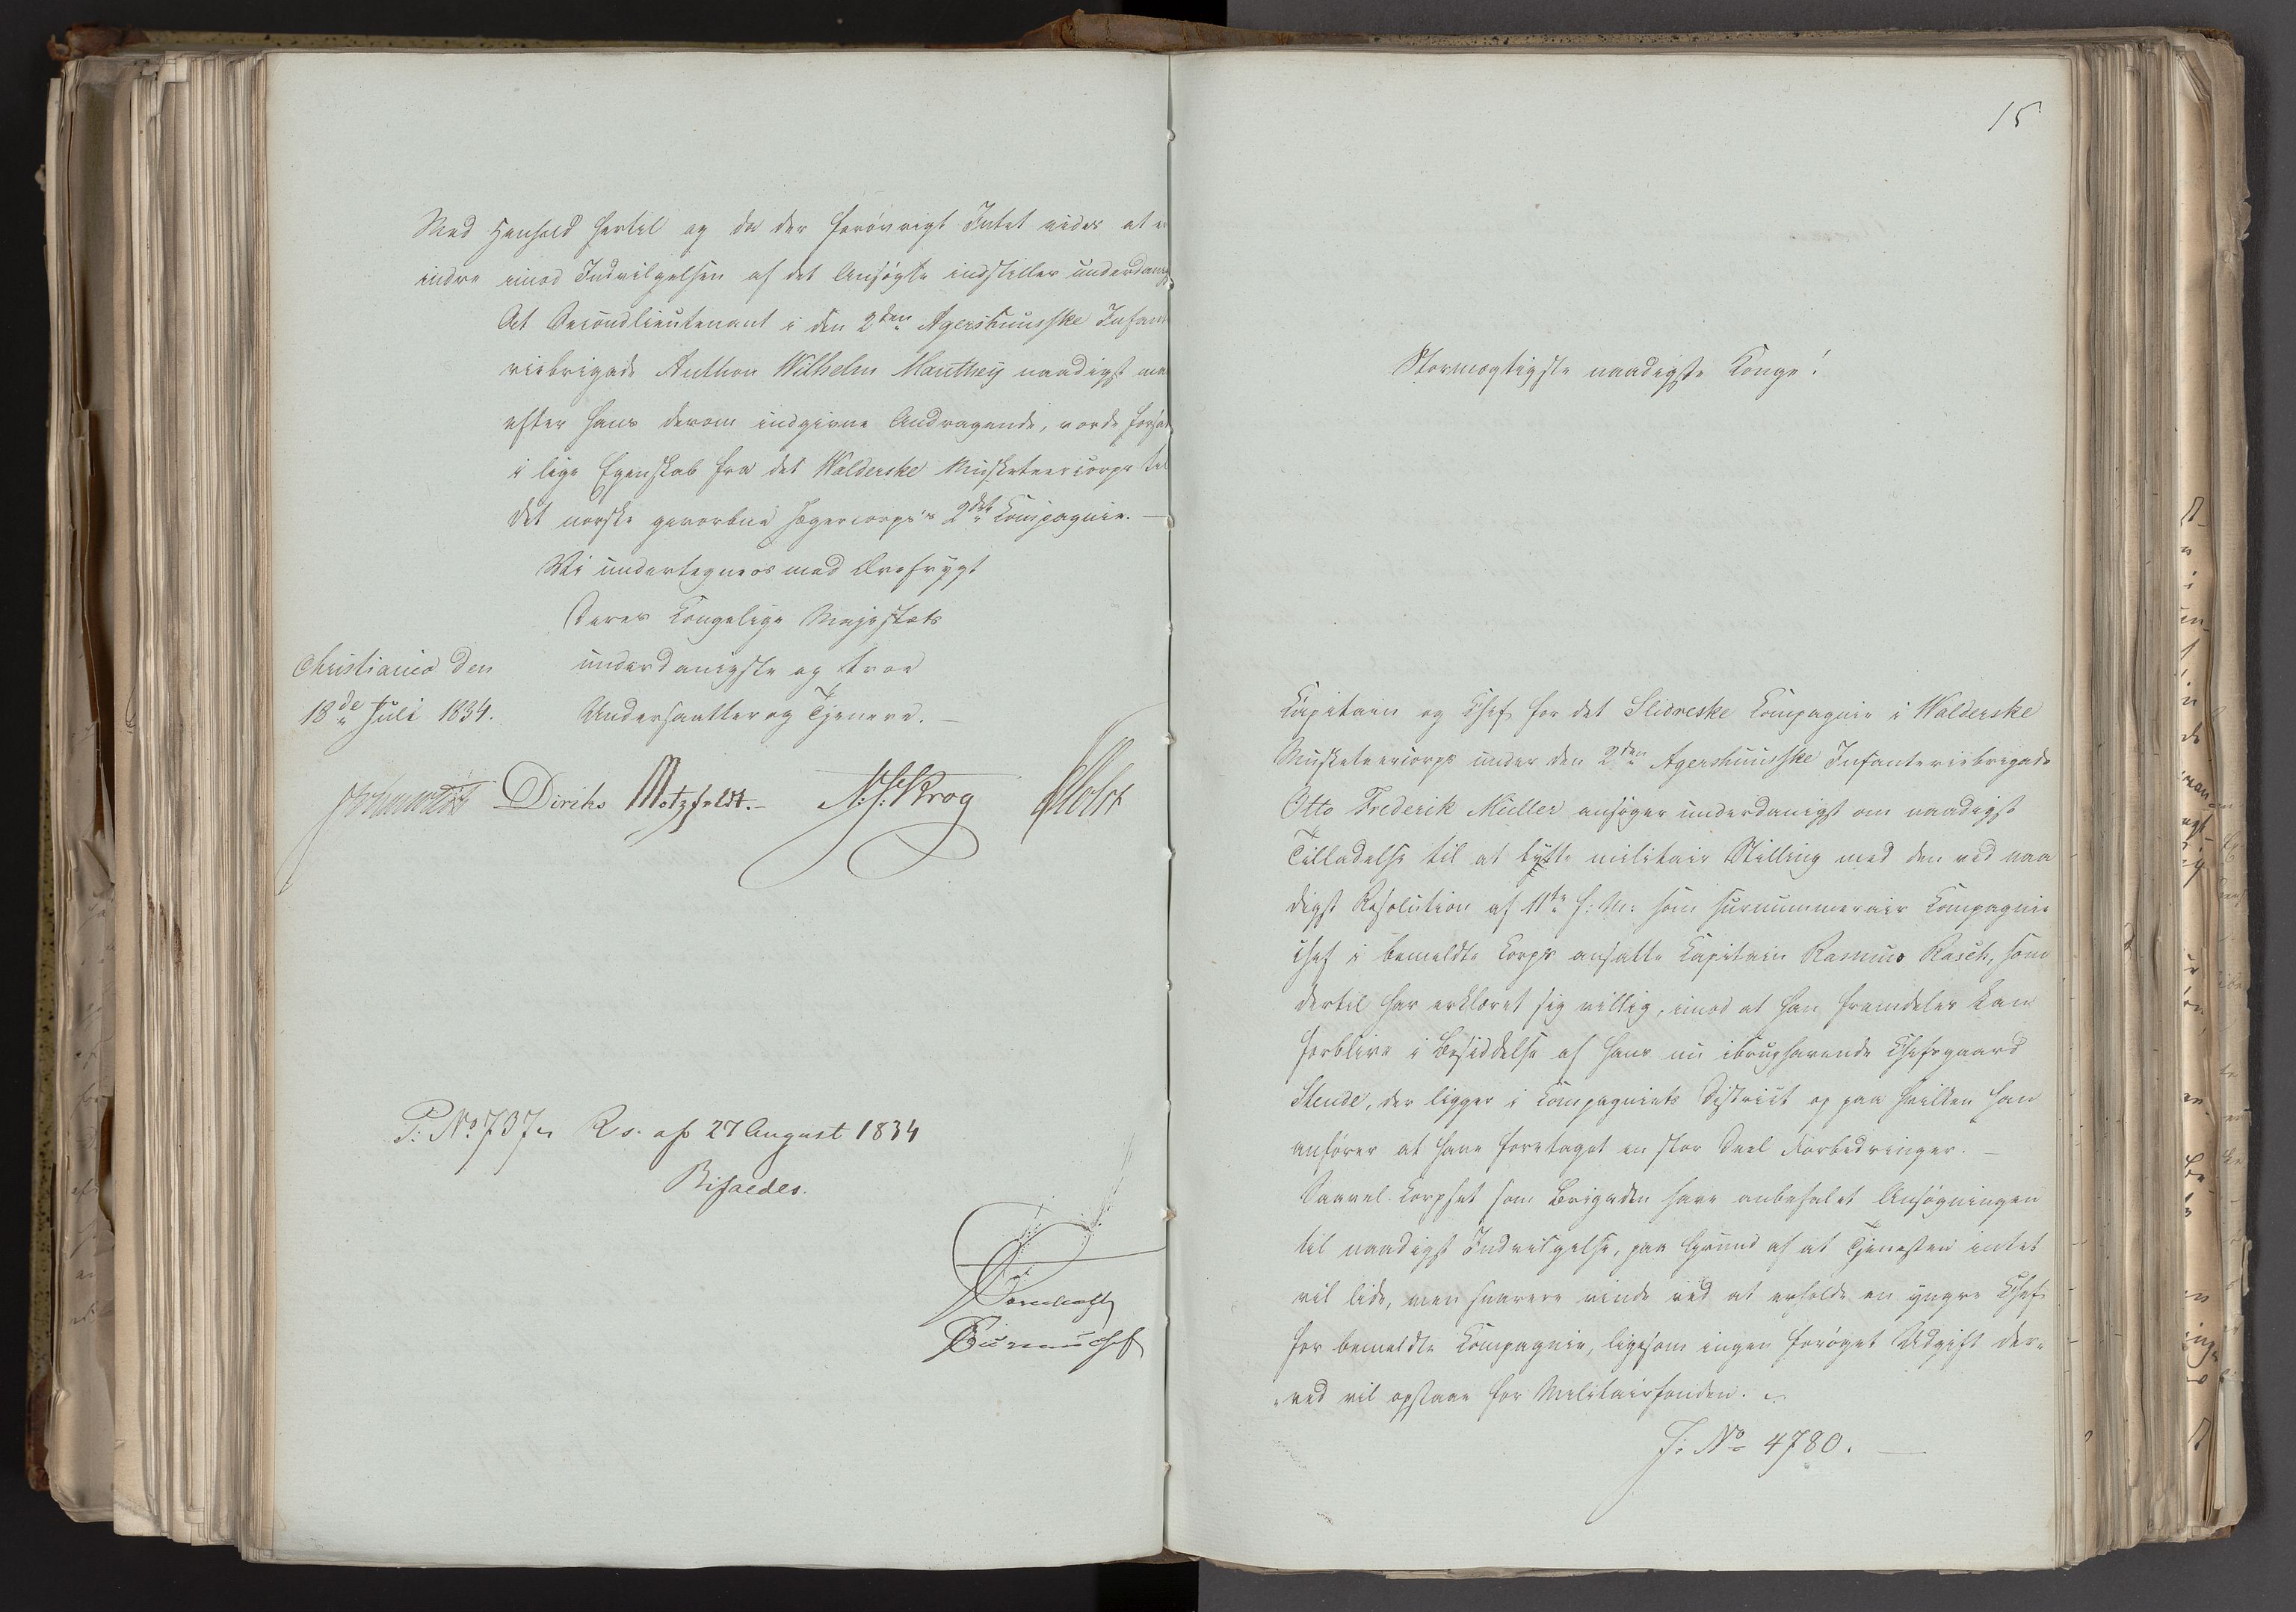 Med Henhold hertil og da der forøvrigt Intet vides at er
indre imod Indvilgelsen af det Ansøgte indstilles underdanig
At Secondlieutenant i den 2den Agershuusske Infan
riebrigade Anthon Wilhelm Manthey naadigst maa
efter hans derom indgivne Andragende, vorde forsat
i lige Egenskab fra det Walderske Musketeercorps til
det norske gevorbne Jægercorps's 2det Compagnie. —
Vi undertegne os med Ærefrygt
Deres Kongelige Majestæts
underdanigste og troe
Undersaatter og Tjenere. —
Christiania den
18de Juli 1834.
Diriks Motzfeldt. N. J. Krog Holst
P: No 737. Rs. af 27 August 1834
Bifaldes.
15
Stormægtigste naadigste Konge!
Capitain og Chef for det Slidreske Compagnie i Walderske
Musketeercorps under den 2den Agershuusske Infanteriebrigade
Otto Frederik Müller ansøger underdanigst om naadigst
Tilladelse til at bytte militair Stilling med den ved naa
digst Resolution af 11te f: M: som surnummerair Compagnie
chef i bemeldte Corps ansatte Capitain Rasmus Rasch, som
dertil har erklæret sig villig, imod at han fremdeles kan
forblive i Besiddelse af hans nu ibrughavende Chefsgaard
Stende, der ligger i Compagniets District og paa hvilken han
anfører at have foretaget en stor Deel Forbedringer. —
Saavel Corpset som Brigaden have anbefalet Ansøgningen
til naadigst Indvilgelse, paa Grund af at Tjenesten intet
vil lide, men snarere vinde ved at erholde en yngre Chef
for bemeldte Compagnie, ligesom ingen forøget Udgift der-
ved vil opstaae for Militairfonden.
J: No 4780. —